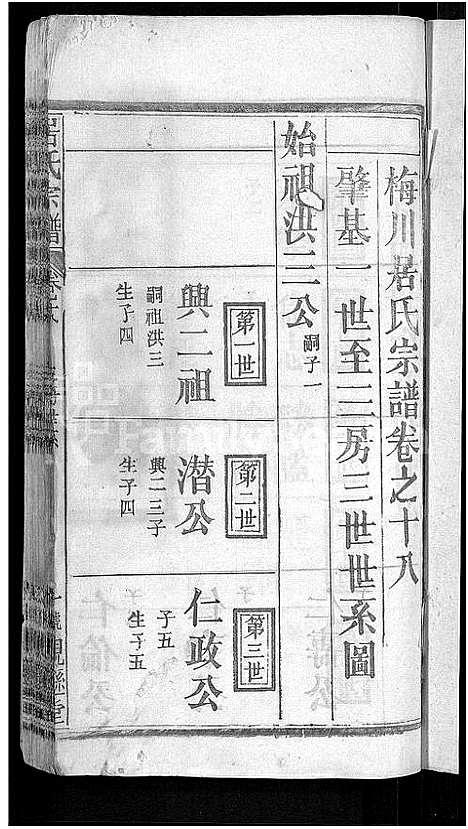 梅川居氏宗譜卷之十八
肇基一世至三房三世世系圖
始祖洪三公
嗣子一
第一世
興二祖
嗣祖洪三
生子四
第二世
潛公
興二三子
生子四
第三世
仁政公
子五
生子五
居氏宗譜